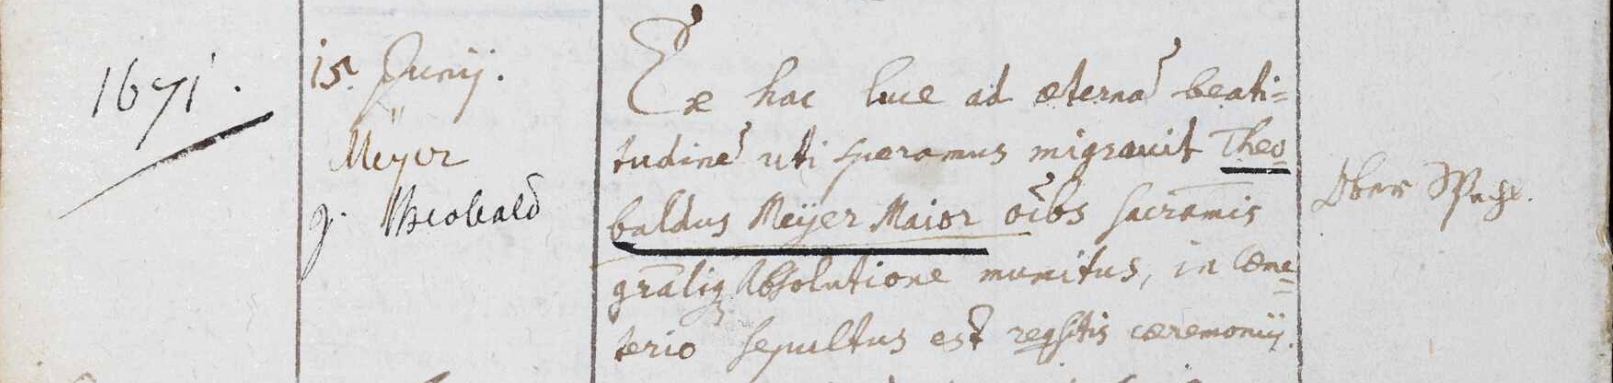 1671.
15. Junij.
Meÿer
Theobald
Ex hac luce ad æternã beati=
tudinẽ uti speramus migravit Theo=
baldus Meÿer Maior oĩbs sacramis
gralig Absolutione munitus, in cœme=
terio sepultus est reqsitis cæremonijs.
Ober